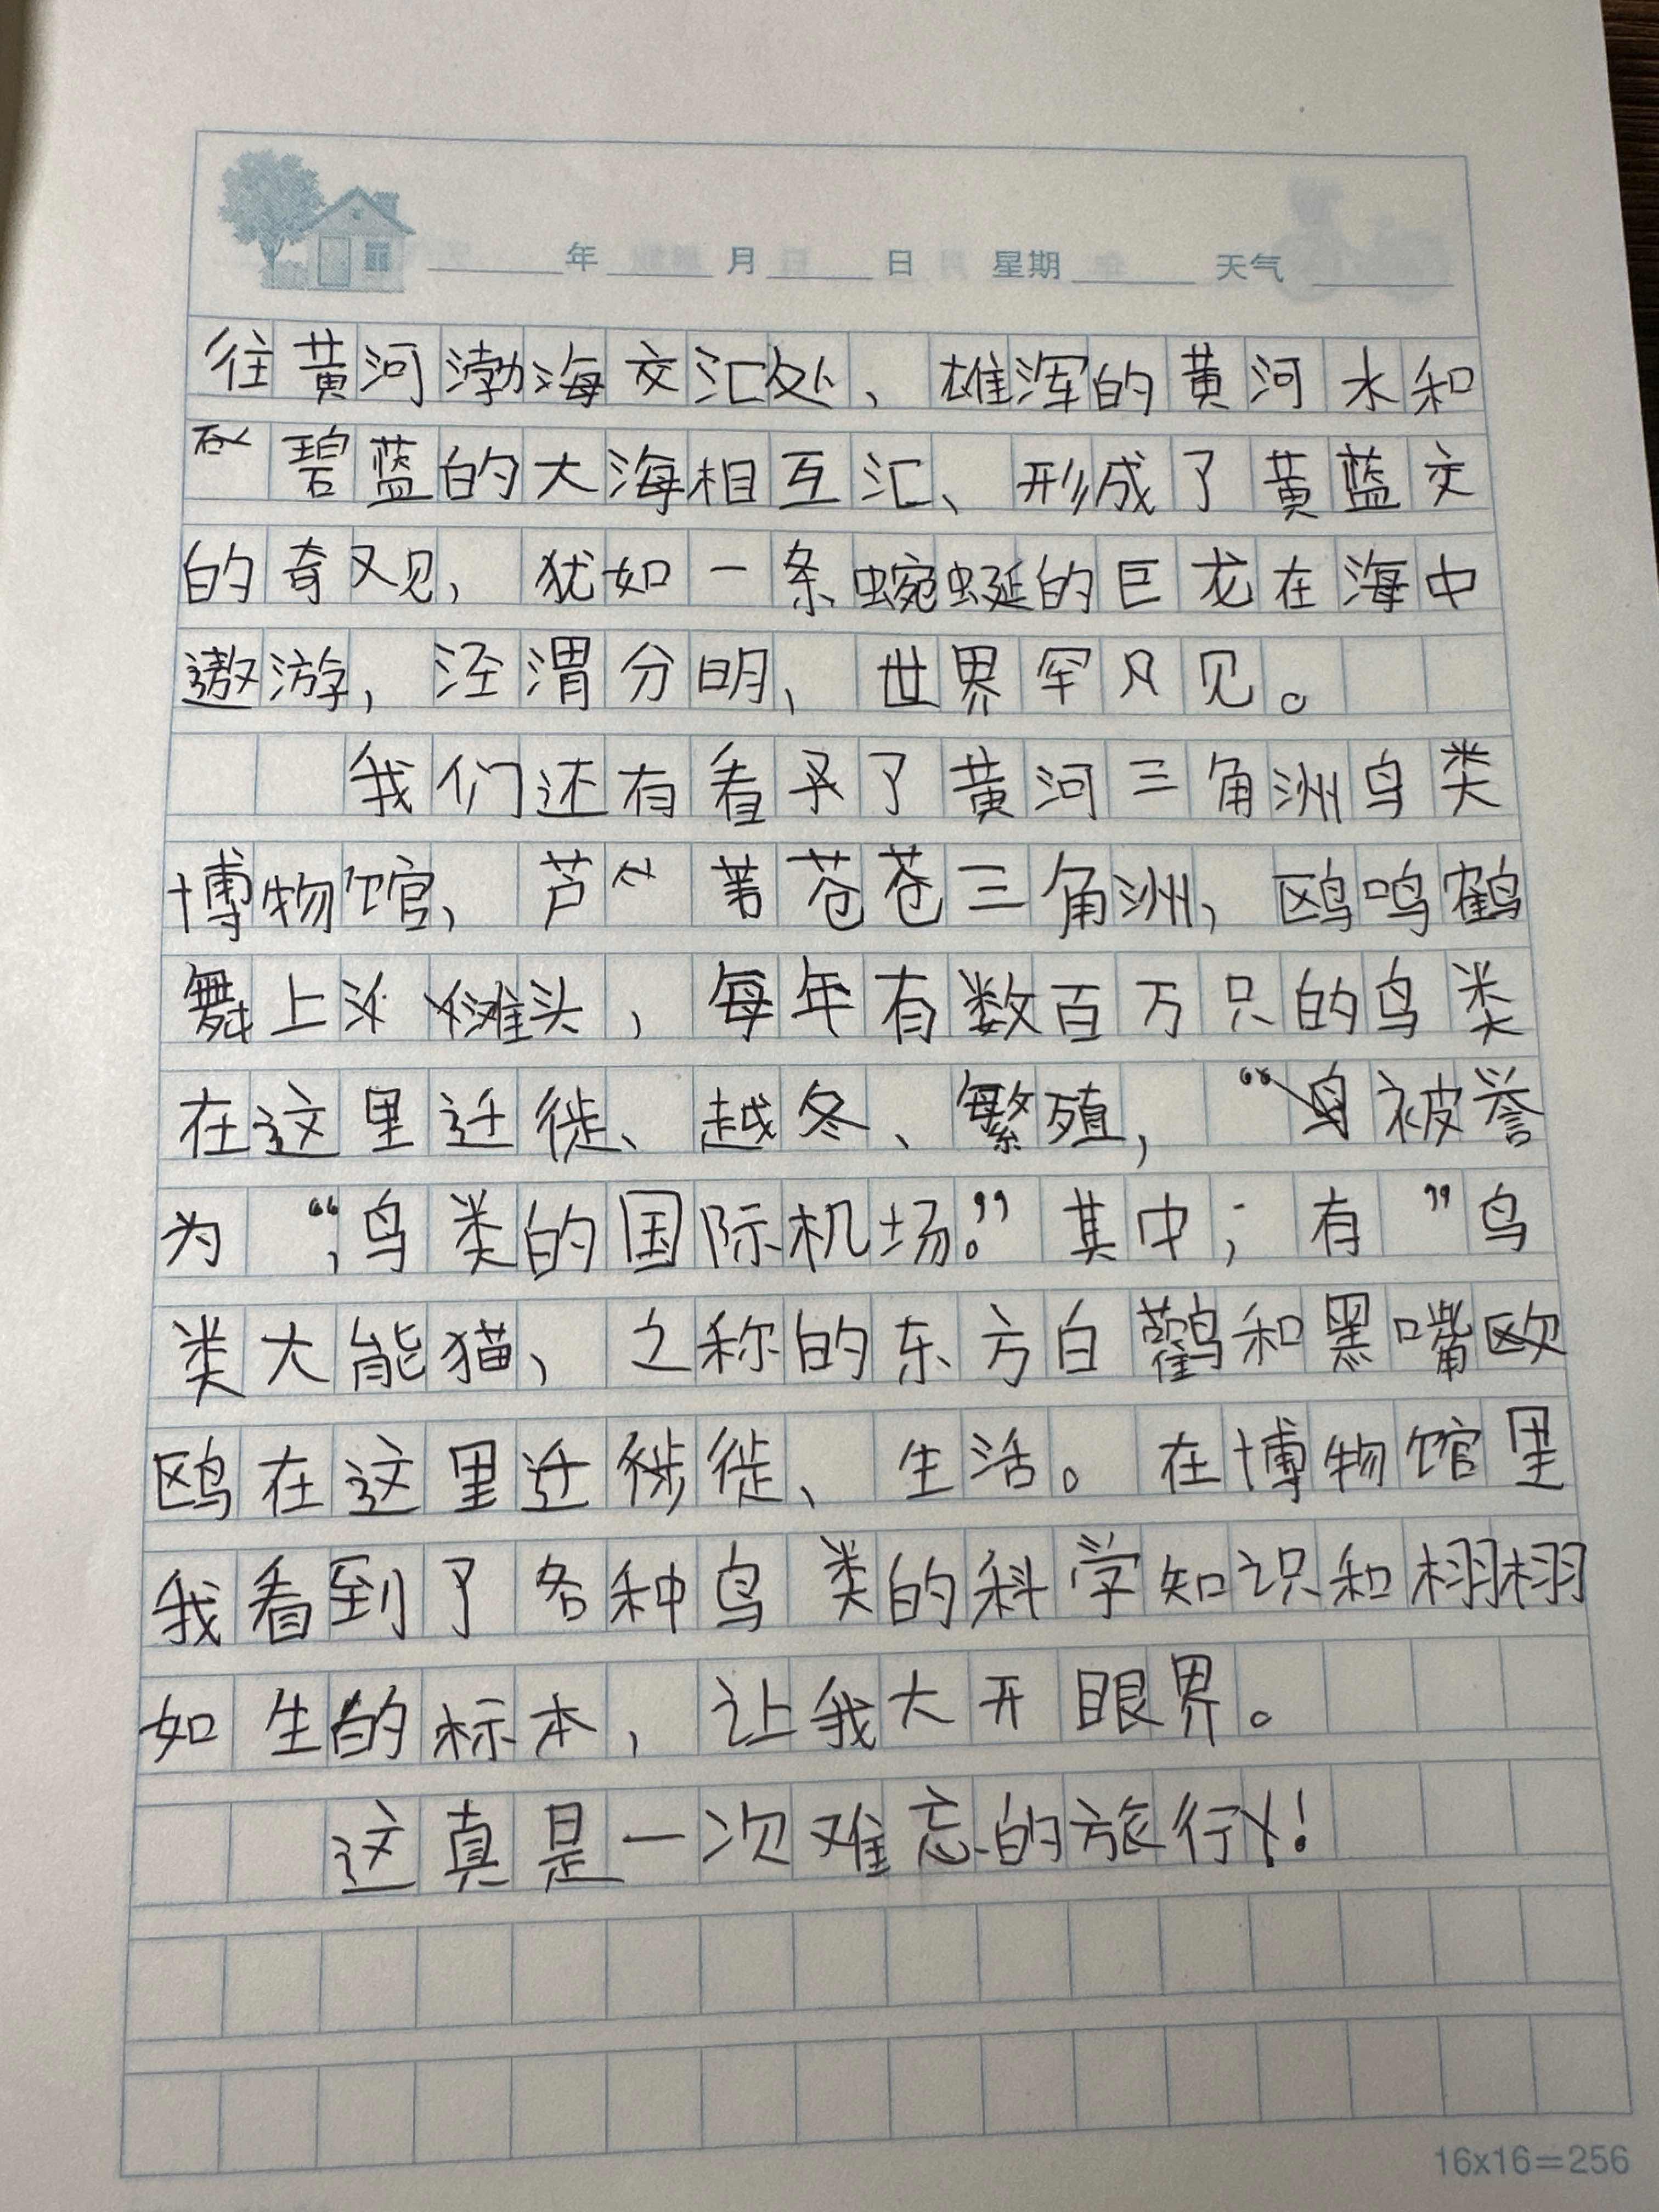 年 月 日 星期 天气
往黄河渤海交汇处、雄浑的黄河水和
碧蓝的大海相互汇、形成了黄蓝交
的奇观，犹如一条蜿蜒的巨龙在海中
遨游，泾渭分明、世界罕见。
我们还有看了黄河三角洲鸟类
博物馆，芦苇苍苍三角洲，鸥鸣鹤
舞上滩头，每年有数百万只的鸟类
在这里迁徙、越冬、繁殖，被誉
为“鸟类的国际机场。”其中；有”鸟
类大能猫、之称的东方白鹳和黑嘴欧
鸥在这里迁徙、生活。在博物馆里
我看到了各种鸟类的科学知识和栩栩
如生的标本，让我大开眼界。
这真是一次难忘的旅行！
16x16=256